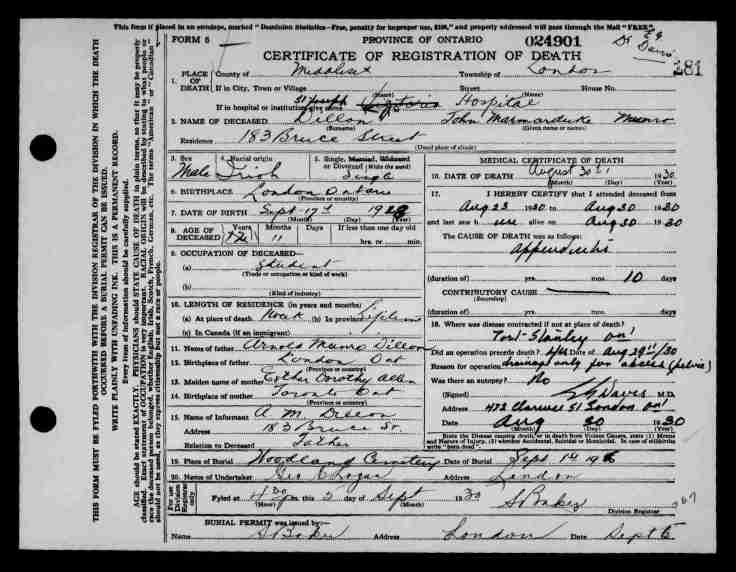 This form if placed in an envelope, marked "Dominion Statistics—Free, penalty for improper use, $100," and properly addressed will pass through the Mail "FREE".
FORM 6 PROVINCE OF ONTARIO 024901
CERTIFICATE OF REGISTRATION OF DEATH
Dr
281
1. PLACE OF DEATH County of Middlesex Township of London
If in City, Town or Village (Name) Street House No.
If in hospital or institution give name St Joseph Hospital
2. NAME OF DECEASED Dillon John Marmaduke Munro
(Surname) (Given name or names)
Residence 183 Bruce Street
(Usual place of abode)
3. Sex Male
4. Racial origin Irish
5. Single, Married, Widowed or Divorced (Write the word) Single
6. BIRTHPLACE London Ontario
(Province or country)
7. DATE OF BIRTH Sept 17th
(Month) (Day) (Year)
8. AGE OF DECEASED Years Months Days If less than one day old
11
hrs. or min.
9. OCCUPATION OF DECEASED—
(a) Student
(Trade or occupation or kind of work)
(b)
(Kind of industry)
10. LENGTH OF RESIDENCE (in years and months)
(a) At place of death Week (b) In province
(c) In Canada (if an immigrant)
11. Name of father Arnold Munro Dillon
12. Birthplace of father London Ont
(Province or country)
13. Maiden name of mother Esther Dorothy Allen
14. Birthplace of mother Toronto Ont
(Province or country)
15. Name of Informant A. M. Dillon
Address 183 Bruce St.
Relation to Deceased Father
MEDICAL CERTIFICATE OF DEATH
16. DATE OF DEATH August 30th 1930
17. I HEREBY CERTIFY that I attended deceased from
Aug 23 1930 to Aug 30 1930
and last saw h alive on Aug 30 1930
The CAUSE OF DEATH was as follows:
Appendicitis
(duration of) yrs. mos. 10 days
CONTRIBUTORY CAUSE
(Secondary)
(duration of) yrs. mos. days
18. Where was disease contracted if not at place of death?
Port Stanley Ont
Did an operation precede death? Yes Date of Aug 29th/30
Reason for operation drainage only for abscess (pelvis)
Was there an autopsy? No
(Signed) Davis M.D.
Address 472 Clarence St London Ont
Date Aug 30 1930
State the Disease causing death, or in death from Violent Causes, state (1) Means and Nature of Injury, (2) whether Accidental, Suicidal or Homicidal. In case of stillbirths write "born dead".
19. Place of Burial Woodland Cemetery Date of Burial Sept 1st 19
20. Name of Undertaker Geo E Logan Address London
For use of Division Registrar only
Fyled at this 2 day of Sept 1930 S Baker
(Month) Division Registrar
BURIAL PERMIT was issued by:—
Name S Baker Address London Date Sept
THIS FORM MUST BE FYLED FORTHWITH WITH THE DIVISION REGISTRAR OF THE DIVISION IN WHICH THE DEATH
OCCURRED BEFORE A BURIAL PERMIT CAN BE ISSUED.
WRITE PLAINLY WITH UNFADING INK. THIS IS A PERMANENT RECORD.
Every item of information should be carefully supplied.
AGE should be stated EXACTLY. PHYSICIANS should STATE CAUSE OF DEATH in plain terms, so that it may be properly
classified. Exact statement of OCCUPATION is very important. RACIAL ORIGIN will be